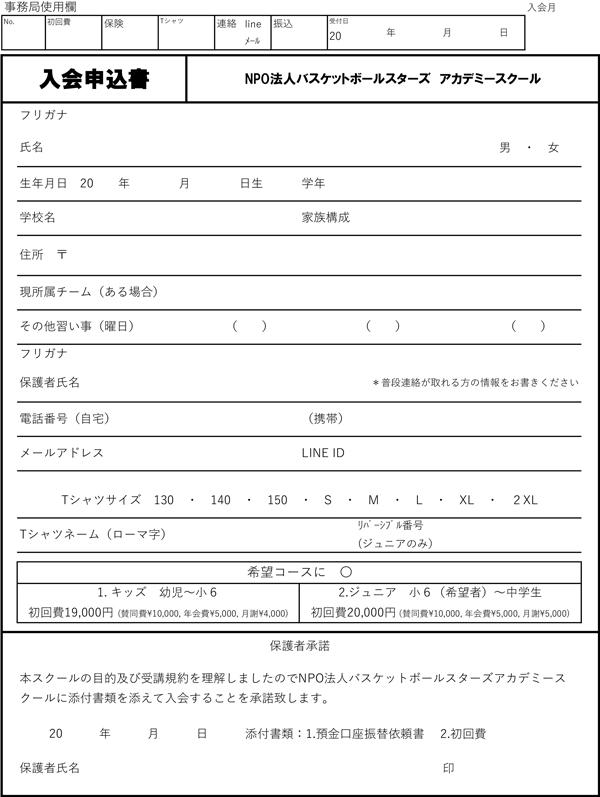 事務局使用欄 入会月
No. 初回費 保険 Tシャツ 連絡 line 振込 受付日
ﾒｰﾙ 20 年 月 日
入会申込書 NPO法人バスケットボールスターズ アカデミースクール
フリガナ
氏名 男 ・ 女
生年月日 20 年 月 日生 学年
学校名 家族構成
住所 〒
現所属チーム（ある場合）
その他習い事（曜日） （ ） （ ） （ ）
フリガナ
保護者氏名 ＊普段連絡が取れる方の情報をお書きください
電話番号（自宅） （携帯）
メールアドレス LINE ID
Tシャツサイズ 130 ・ 140 ・ 150 ・ S ・ M ・ L ・ XL ・ 2 XL
Tシャツネーム（ローマ字） ﾘﾊﾞｰｼﾌﾞﾙ番号
（ジュニアのみ）
希望コースに 〇
1. キッズ 幼児～小６ 2.ジュニア 小６（希望者）～中学生
初回費19,000円 (賛同費¥10,000, 年会費¥5,000, 月謝¥4,000) 初回費20,000円 (賛同費¥10,000, 年会費¥5,000, 月謝¥5,000)
保護者承諾
本スクールの目的及び受講規約を理解しましたのでNPO法人バスケットボールスターズアカデミース
クールに添付書類を添えて入会することを承諾致します。
20 年 月 日 添付書類：1.預金口座振替依頼書 2.初回費
保護者氏名 印